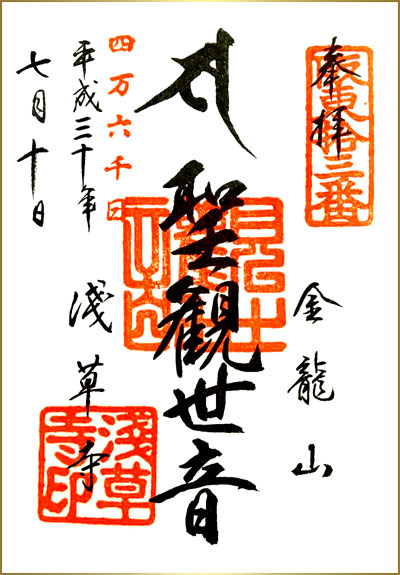 奉拝
坂東拾三番
金龍山
聖観世音
浅草寺
四万六千日
平成三十年
七月十日
淺草寺印